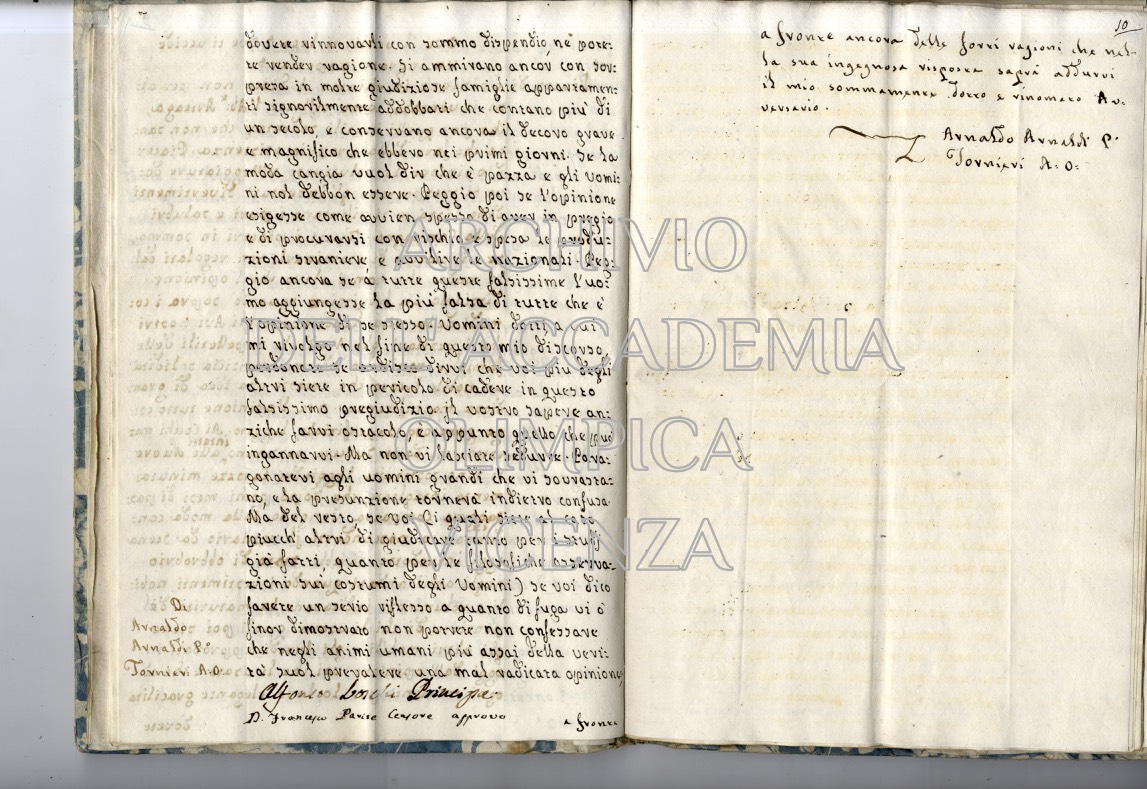 dovere rinnovarli con sommo dispendio nè pote:
te render ragione. Si ammirano ancor con sor:
presa in molte giudiziose famiglie appartamen:
ti signorilmente addobbati che contano piu' di
un secolo, e conservano ancora il decoro grave
e magnifico che ebbero nei primi giorni. Se la
moda cangia vuol dir che e' pazza e gli Vomi:
ni nol debbon essere. Peggio poi se l'opinione
esigesse come avvien spesso di aver in pregio
e di procurarsi con rischio e spesa le produ:
zioni straniere e avvilire le nazionali. Peg:
gio ancora se à tutte queste falsissime l'uo:
mo aggiungesse la piu falsa di tutte che e'
l'opinione di se stesso. Uomini dotti a cui
mi rivolgo nel fine di questo mio discorso,
perdonate se ardisco dirvi che voi piu degli
altri siete in pericolo di cadere in questo
falsissimo pregiudizio il vostro sapere an:
ziche farvi ostacolo, è appunto quello che puo'
ingannarvi. Ma non vi lasciate sedurre. Para:
gonatevi agli uomini grandi che vi sovrasta:
no, e la presunzione tornerà indietro confusa.
Ma del resto se voi (i quali siete al caso
piucch' altri di giudicare tanto per i studj
già fatti, quanto per le filosofiche osserva:
zioni sui costumi degli Vomini) se voi dico
farete un serio riflesso a quanto di fuga vi ò
finor dimostrato non potrete non confessare
che negli animi umani piu' assai della veri:
ta' suol prevalere una mal radicata opinione,
Di
Arnaldo
Arnaldi P.º
Tornieri A.O.
Alfonso Loschi Principe
D. Francesco Parise Censore approvo
a fronte
10
a fronte ancora delle forti ragioni che nel:
la sua ingegnosa risposta saprà addurvi
il mio sommamente dotto e rinomato Av:
versario.
Arnaldo Arnaldi P.º
Tornieri A: O:
ARCHIVIO
DELL'ACCADEMIA
OLIMPICA
VICENZA